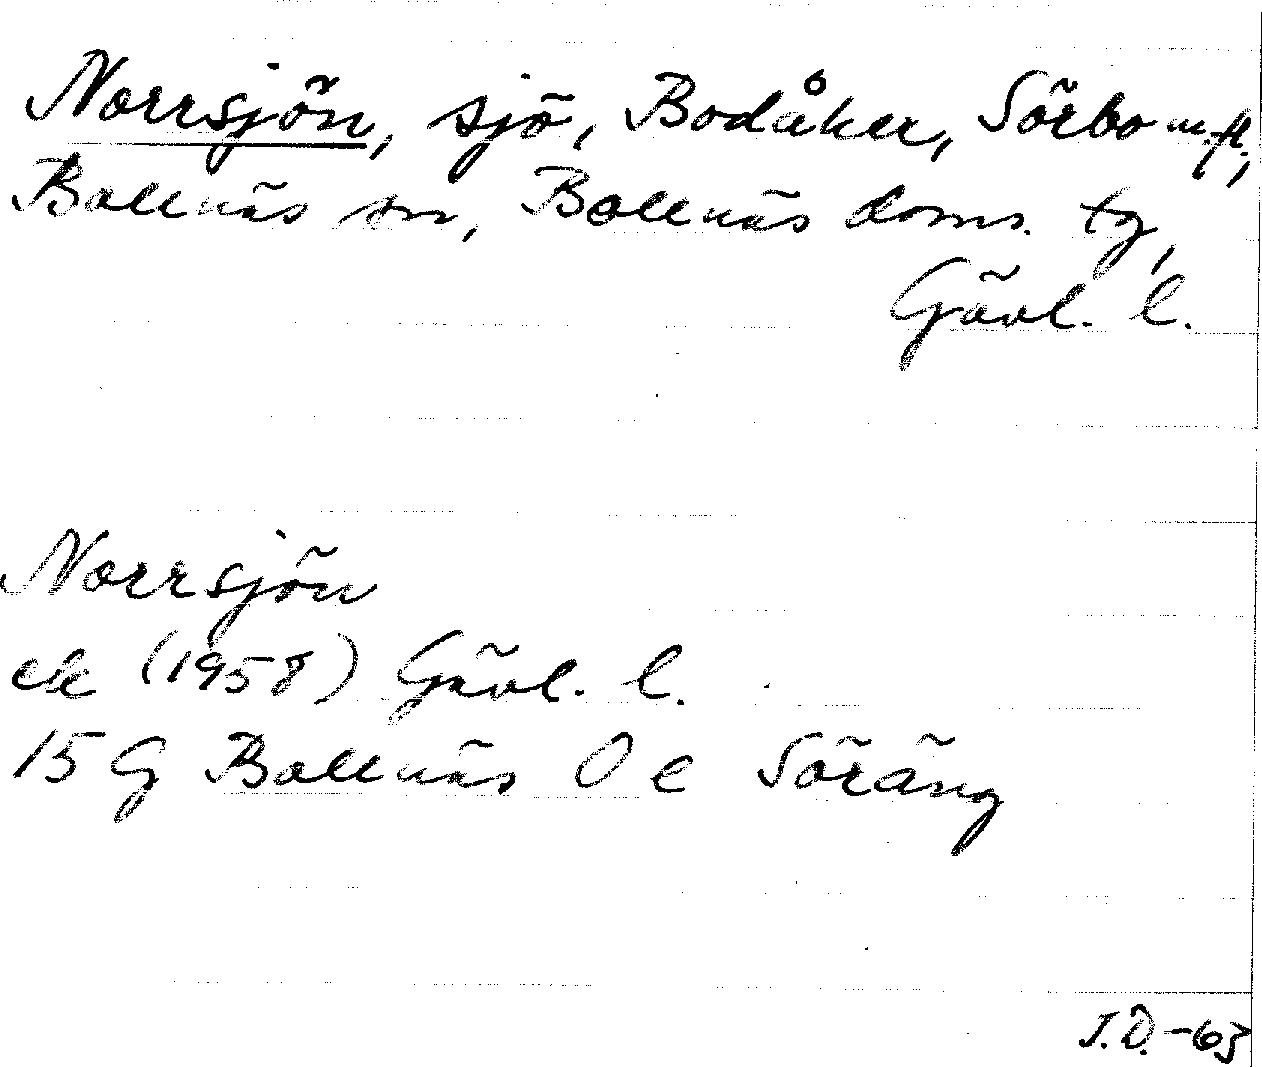 Norrsjön, sjö, Bodåker, Sörbo m.fl.,
Bollnäs sn, Bollnäs doms. tg,
Gävl. l.
Norrsjön
ek (1958) Gävl. l.
15 G Bollnäs O e Söräng
J.Ö.-63